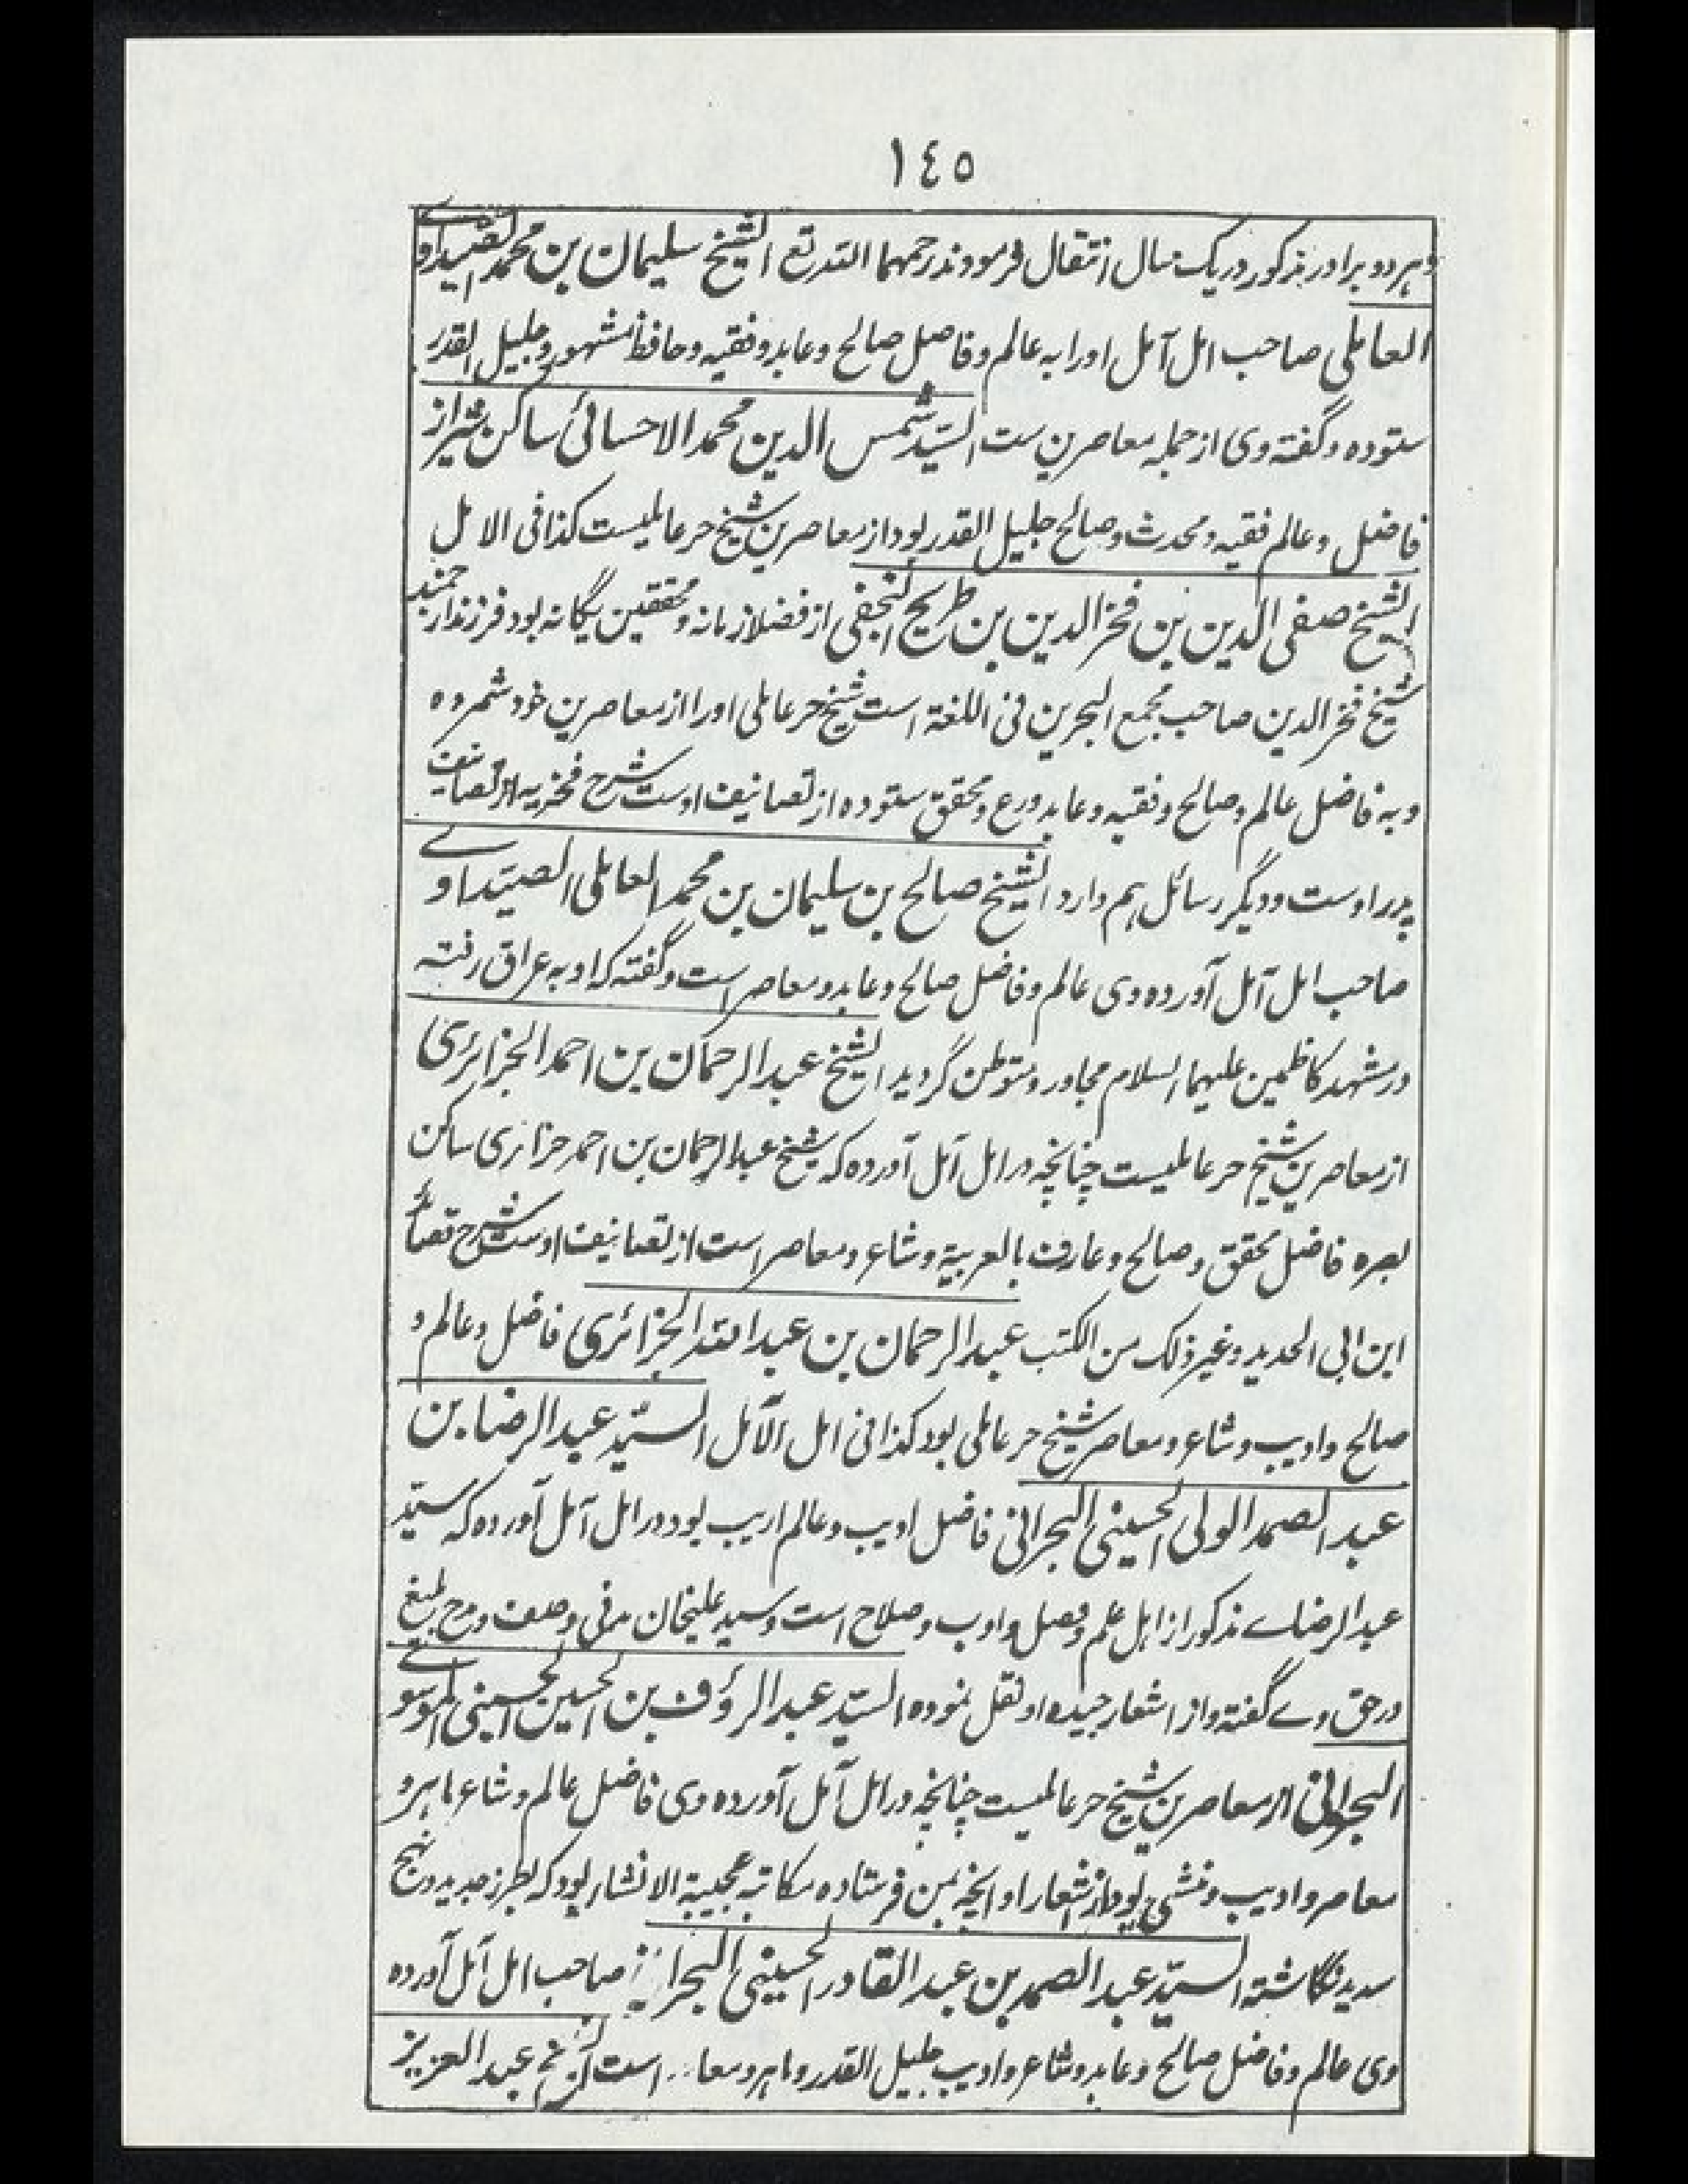 ١٤٥
وهر دو برادر مذکور در یک سال انتقال فرمودند رحمهما الله تع الشیخ سلیمان بن محمد الصیداوے
العاملی صاحب امل آمل اورا به عالم و فاضل صالح و عابد و فقیه و حافظ مشهور و جلیل القدر
ستوده و گفته وی از جمله معاصرین ست السیّد شمس الدین محمد الاحسائی ساکن شیراز
فاضل و عالم فقیه و محدث و صالح جلیل القدر بود از معاصرین شیخ حر عاملیست کذا فی الامل
الشیخ صفی الدین بن فخر الدین بن طریح النجفی از فضلاء زمانه و محققین یگانه بود فرزند ارجمند
شیخ فخر الدین صاحب مجمع البحرین فی اللغة است شیخ حر عاملی اورا از معاصرین خود شمرده
و به فاضل عالم و صالح و فقیه و عابد ورع و محقق ستوده از تصانیف اوست شرح فخریه از تصانیف
پدر اوست و دیگر رسائل هم دارد الشیخ صالح بن سلیمان بن محمد العاملی الصیداوے
صاحب امل آمل آورده وی عالم و فاضل صالح و عابد و معاصر است و گفته که او به عراق رفته
در مشهد کاظمین علیهما السلام مجاور و متوطن گردید الشیخ عبد الرحمان بن احمد الجزائری
از معاصرین شیخ حر عاملیست چنانچه در امل آمل آورده که شیخ عبد الرحمان بن احمد جزائری ساکن
بصره فاضل محقق و صالح و عارف بالعربیة و شاعر و معاصر است از تصانیف اوست شرح قصائد
ابن ابی الحدید و غیر ذلک من الکتب عبد الرحمان بن عبد الله الجزائری فاضل و عالم و
صالح و ادیب و شاعر و معاصر شیخ حر عاملی بود کذا فی امل الآمل السیّد عبد الرضا بن
عبد الصمد الولی الحسینی البحرانی فاضل ادیب و عالم اریب بود در امل آمل آورده که سیّد
عبد الرضاے مذکور از اهل علم و فضل و ادب و صلاح است و سید علیخان مدنی وصف و مدح بلیغ
در حق وے گفته و از اشعار جیده او نقل نموده السیّد عبد الرؤف بن الحسین الحسینی الموسوے
البحرانی از معاصرین شیخ حر عاملیست چنانچه در امل آمل آورده وی فاضل عالم و شاعر ماهر و
معاصر و ادیب و منشی بود از اشعار او انچه بمن فرستاده مکاتبه عجیبة الانشاء بود که بطرز جدید و نهج
سدید نگاشته السیّد عبد الصمد بن عبد القادر الحسینی البحرانی صاحب امل آمل آورده
وی عالم و فاضل صالح و عابد و شاعر و ادیب جلیل القدر و ماهر و است الشیخ عبد العزیز